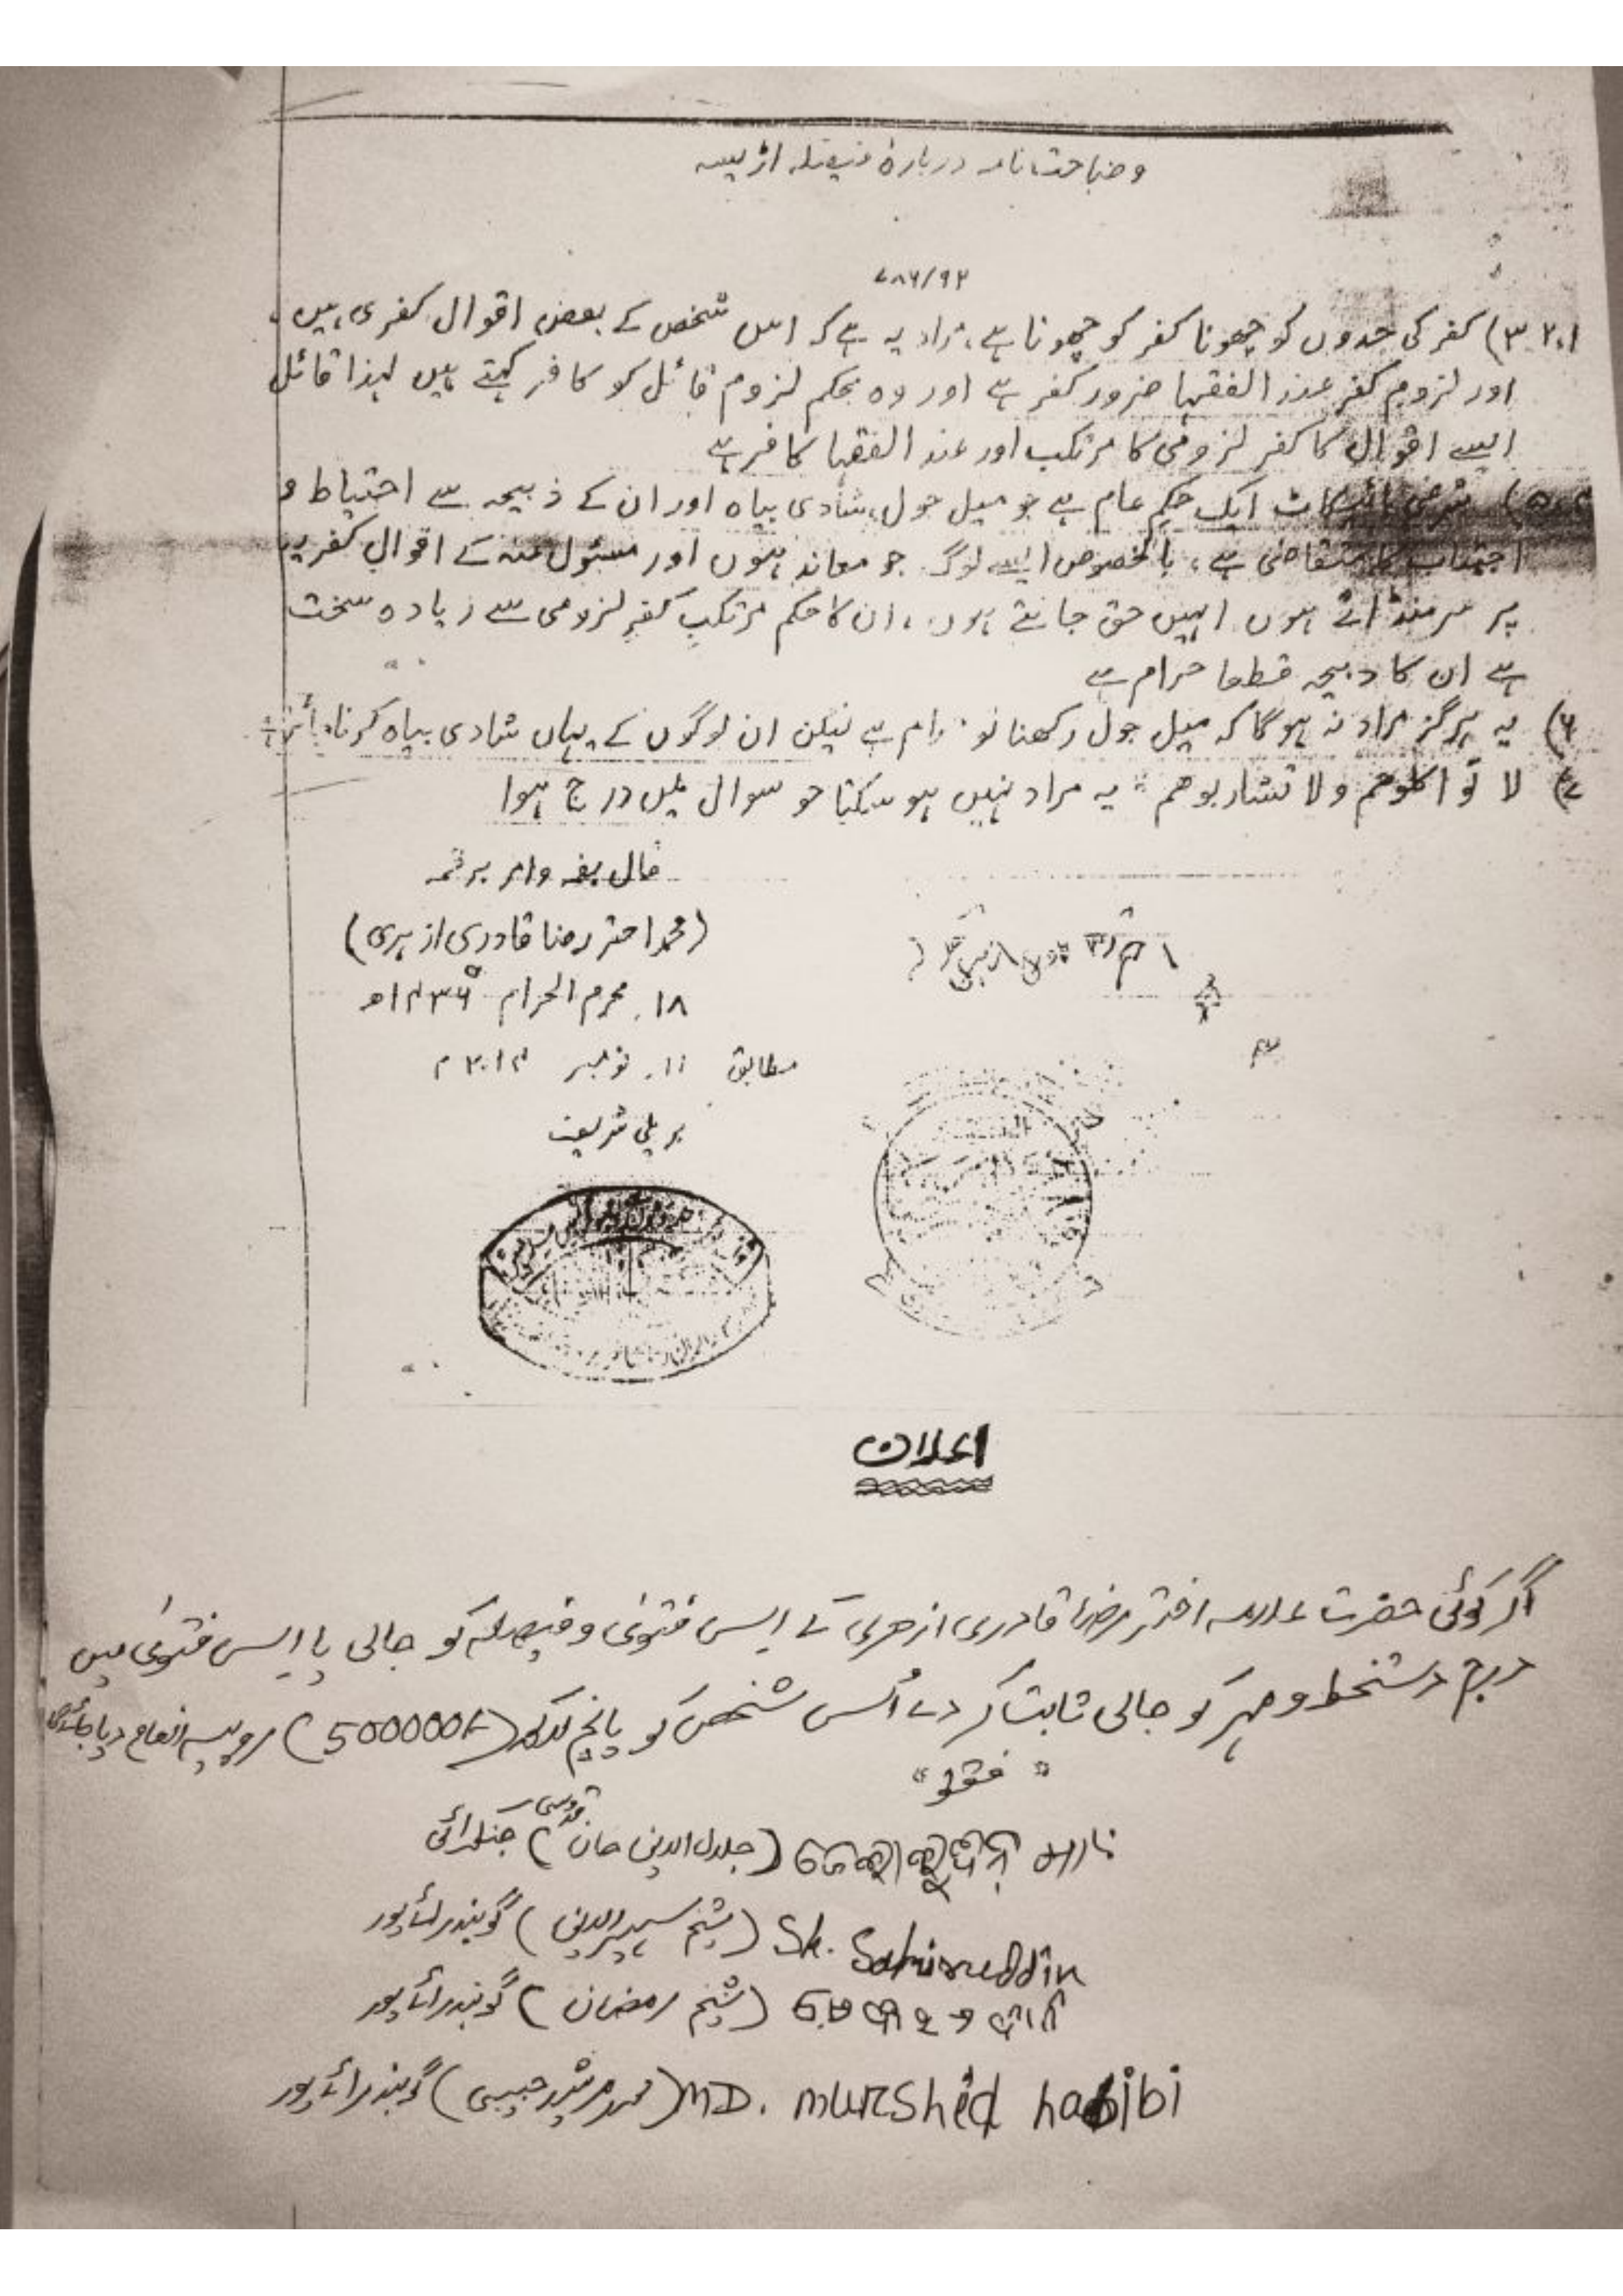 وضاحت نامہ دربارۂ فیصلہ اڑیسہ
۷۸۶/۹۲
۳،۲،۱) کفر کی حدوں کو چھونا کفر کو چھونا ہے، مراد یہ ہے کہ اس شخص کے بعض اقوال کفری ہیں،
اور لزوم کفر عند الفقہا ضرور کفر ہے اور وہ بحکم لزوم قائل کو کافر کہتے ہیں لہذا قائل
ایسے اقوال کا کفر لزومی کا مرتکب اور عند الفقہا کافر ہے
۵،۴) شرعی بائیکاٹ ایک حکم عام ہے جو میل جول، شادی بیاہ اور ان کے ذبیحہ سے احتیاط و
اجتناب کا متقاضی ہے، بالخصوص ایسے لوگ جو معاند ہوں اور مسئول عنہ کے اقوال کفریہ
پر سر منڈاتے ہوں انہیں حق جانتے ہوں، ان کا حکم مرتکب کفر لزومی سے زیادہ سخت
ہے ان کا ذبیحہ قطعا حرام ہے
۶) یہ ہرگز مراد نہ ہوگا کہ میل جول رکھنا تو حرام ہے لیکن ان لوگوں کے یہاں شادی بیاہ کرنا جائز ہے
۷) لا تواکلوھم ولا تشاربوھم " یہ مراد نہیں ہو سکتا جو سوال میں درج ہوا
قال بفمہ وامر برقمہ
(محمد اختر رضا قادری ازہری)
۱۸، محرم الحرام ۱۴۳۶ھ
مطابق ۱۱، نومبر ۲۰۱۴ء
بریلی شریف
اعلان
اگر کوئی حضرت علامہ اختر رضا قادری ازھری کے اس فتویٰ و فیصلہ کو جالی یا اس فتویٰ میں
درج دستخط و مہر کو جالی ثابت کر دے اُس شخص کو پانچ لاکھ (500000/-) روپیہ انعام دیا جائے گا
" فقط "
(جلال الدین خان قدوسی)
Sk. Sahiruddin (شیخ سہیر الدین) گوبندرائے پور
(شیخ رمضان) گوبندرائے پور
MD. murshid habibi (محمد مرشد حبیبی) گوبندرائے پور